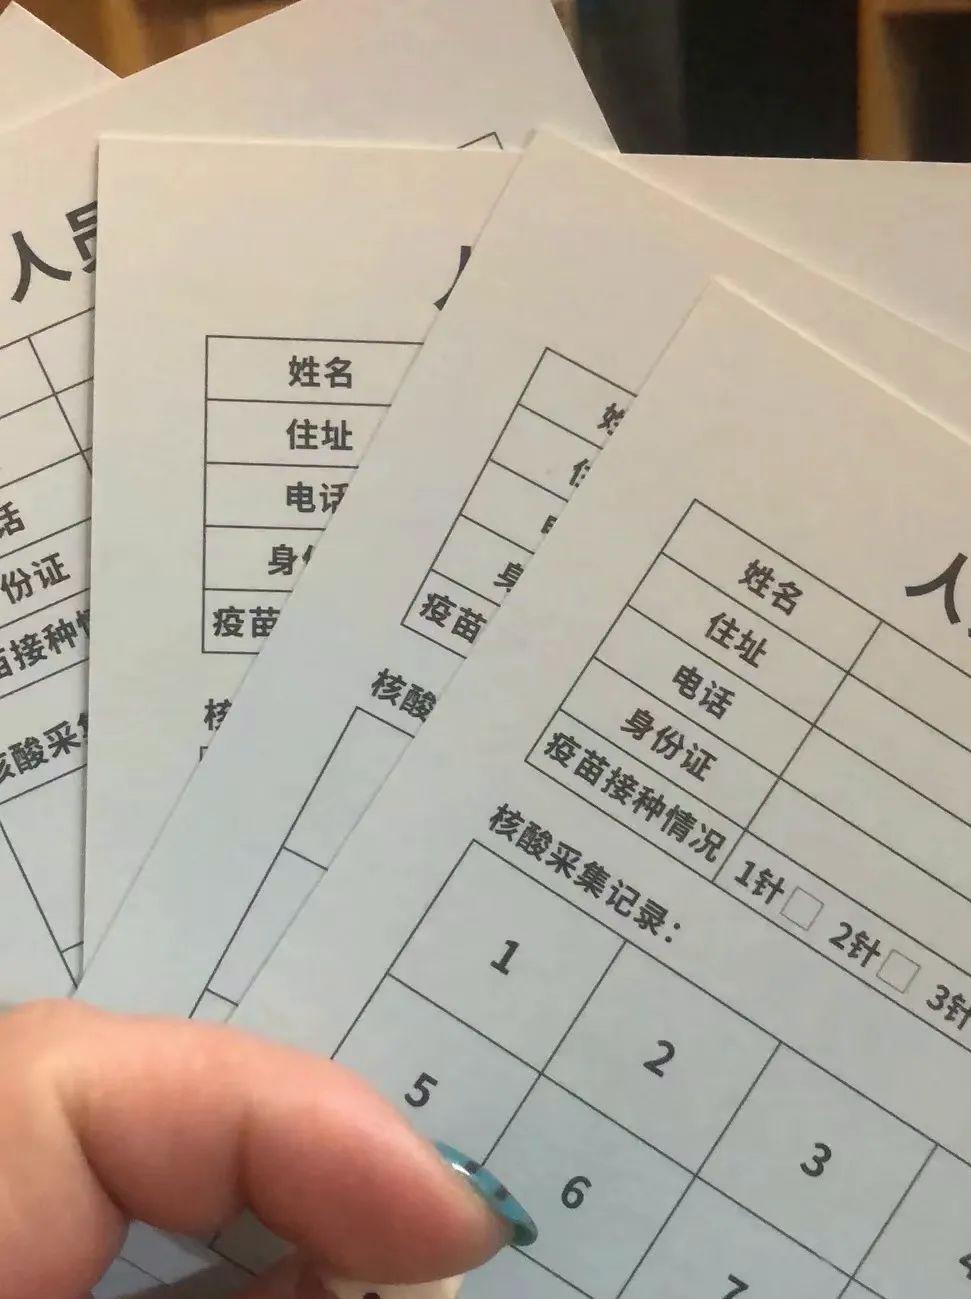 人员
话
份证
苗接种
核酸采集
姓名
住址
电话
身份
疫苗
核
姓
住
电
身
疫苗
核酸
人
姓名
住址
电话
身份证
疫苗接种情况 1针□ 2针□ 3针
核酸采集记录：
1 2 3 4
5 6 7